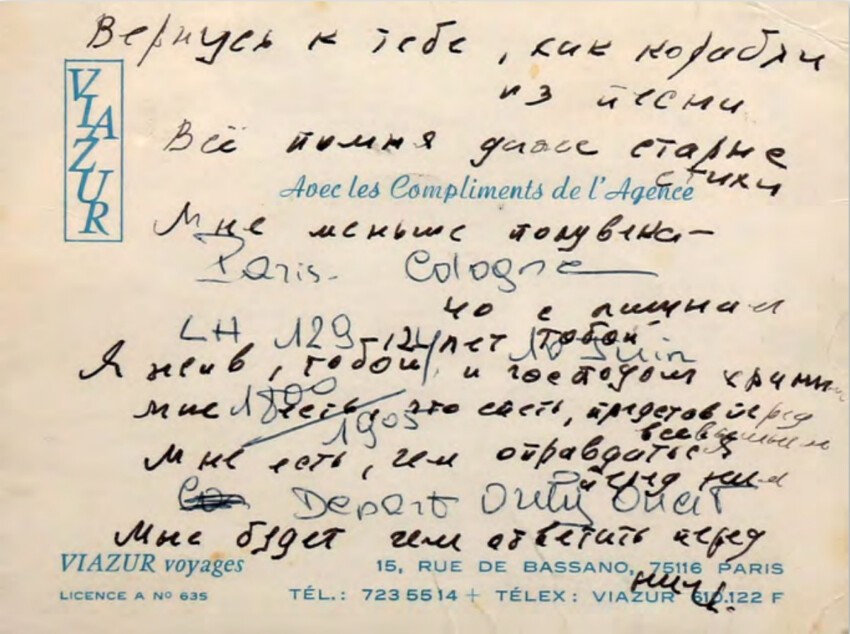 Вернусь к тебе, как корабли
из песни
Всё помня даже старые
стихи
VIAZUR
Avec les Compliments de l'Agence
Мне меньше полувека –
Paris - Cologne
40 с лишним
LH 129 10 Juin
12 лет тобой
Я жив, тобой и господом храним
1800
Мне есть, что спеть, представ перед
всевышним
1905
Мне есть, чем оправдаться
перед ним
Depart Orly Ouest
Мне будет чем ответить перед
ним.
VIAZUR voyages
15, RUE DE BASSANO, 75116 PARIS
LICENCE A Nº 635
TÉL.: 723 55 14 + TÉLEX : VIAZUR 610.122 F